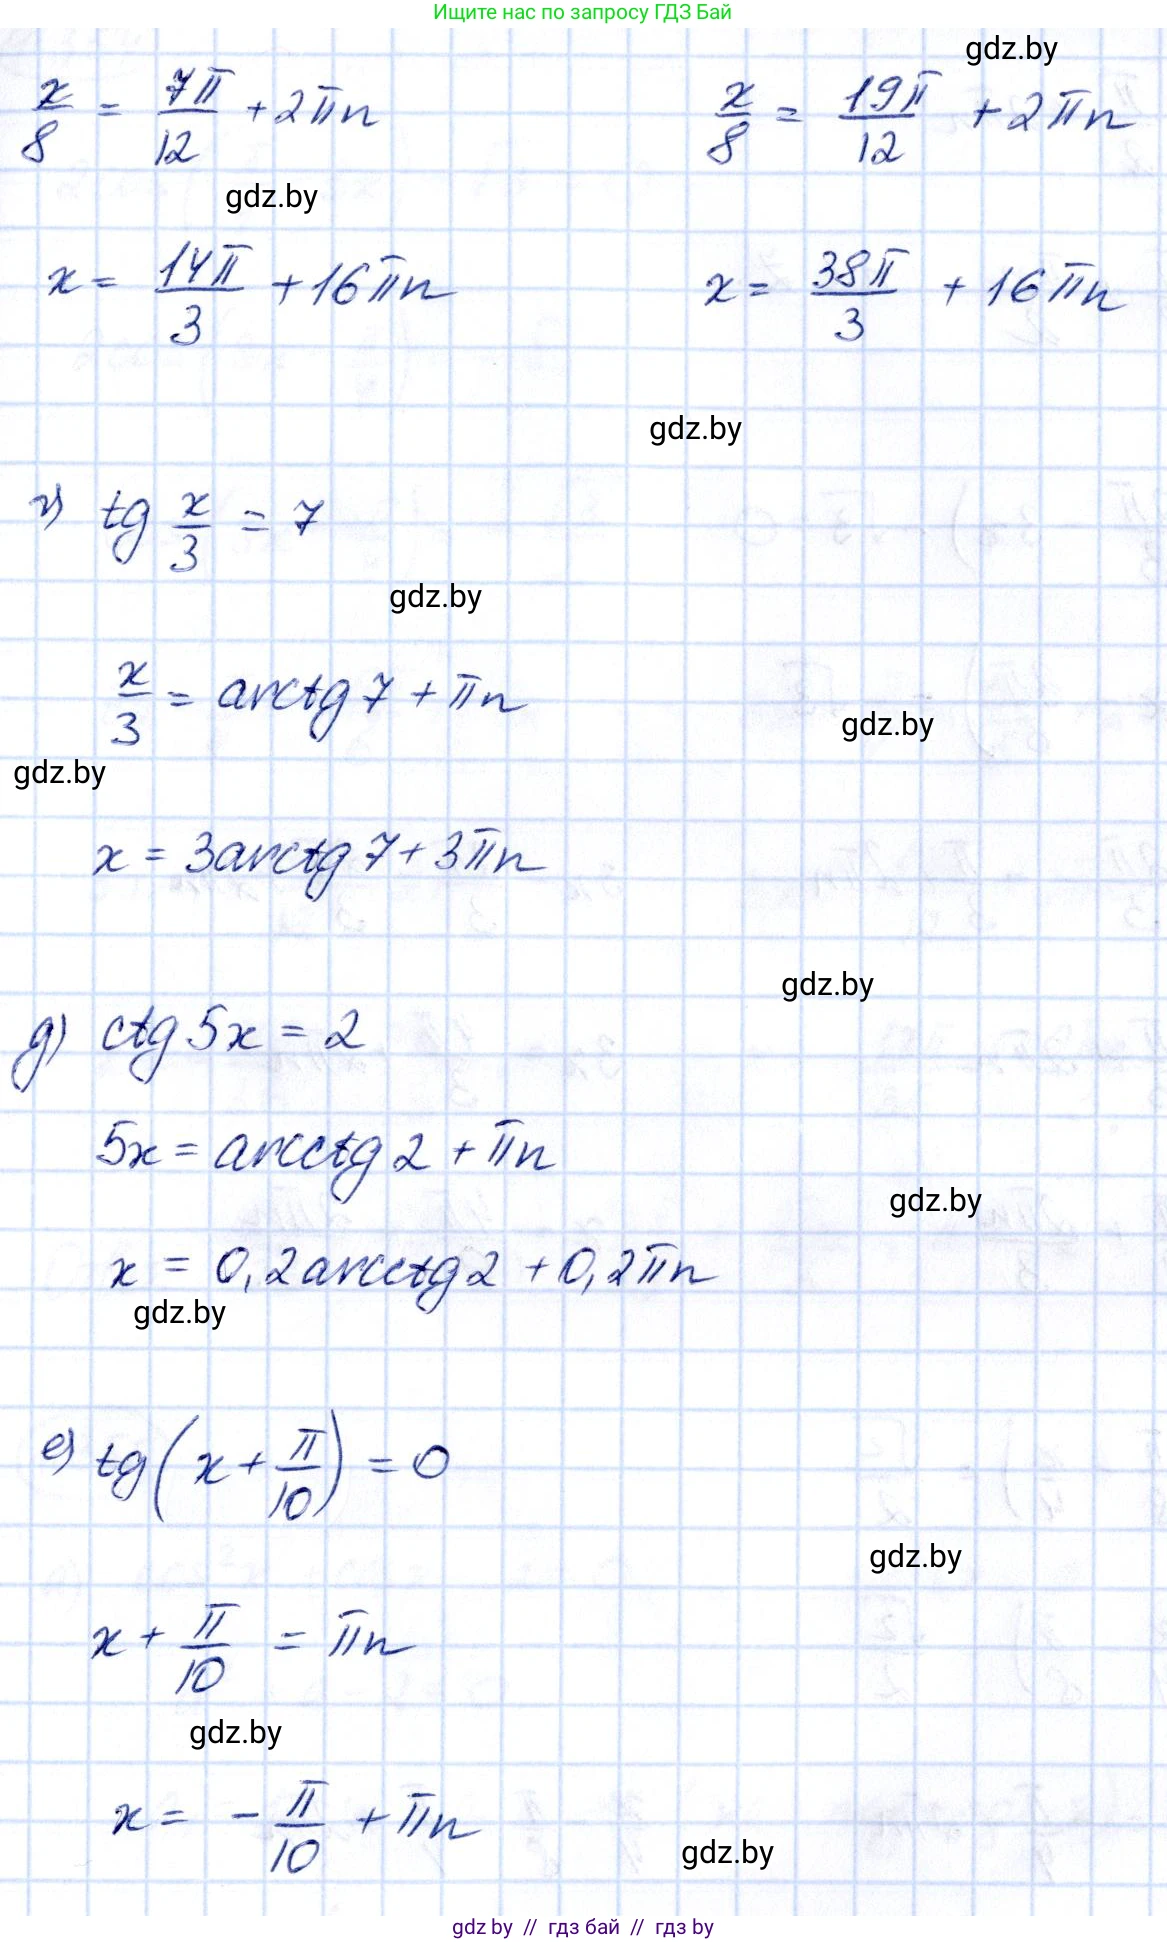 Ищите нас по запросу ГДЗ Бай
gdz.by
x/8 = 7π/12 + 2πn
x/8 = 19π/12 + 2πn
gdz.by
x = 14π/3 + 16πn
x = 38π/3 + 16πn
gdz.by
г) tg x/3 = 7
gdz.by
x/3 = arctg 7 + πn
gdz.by
gdz.by
x = 3arctg 7 + 3πn
gdz.by
д) ctg 5x = 2
5x = arcctg 2 + πn
gdz.by
x = 0,2arcctg 2 + 0,2πn
gdz.by
е) tg(x + π/10) = 0
gdz.by
x + π/10 = πn
gdz.by
x = - π/10 + πn
gdz.by
gdz by // гдз бай // гдз by